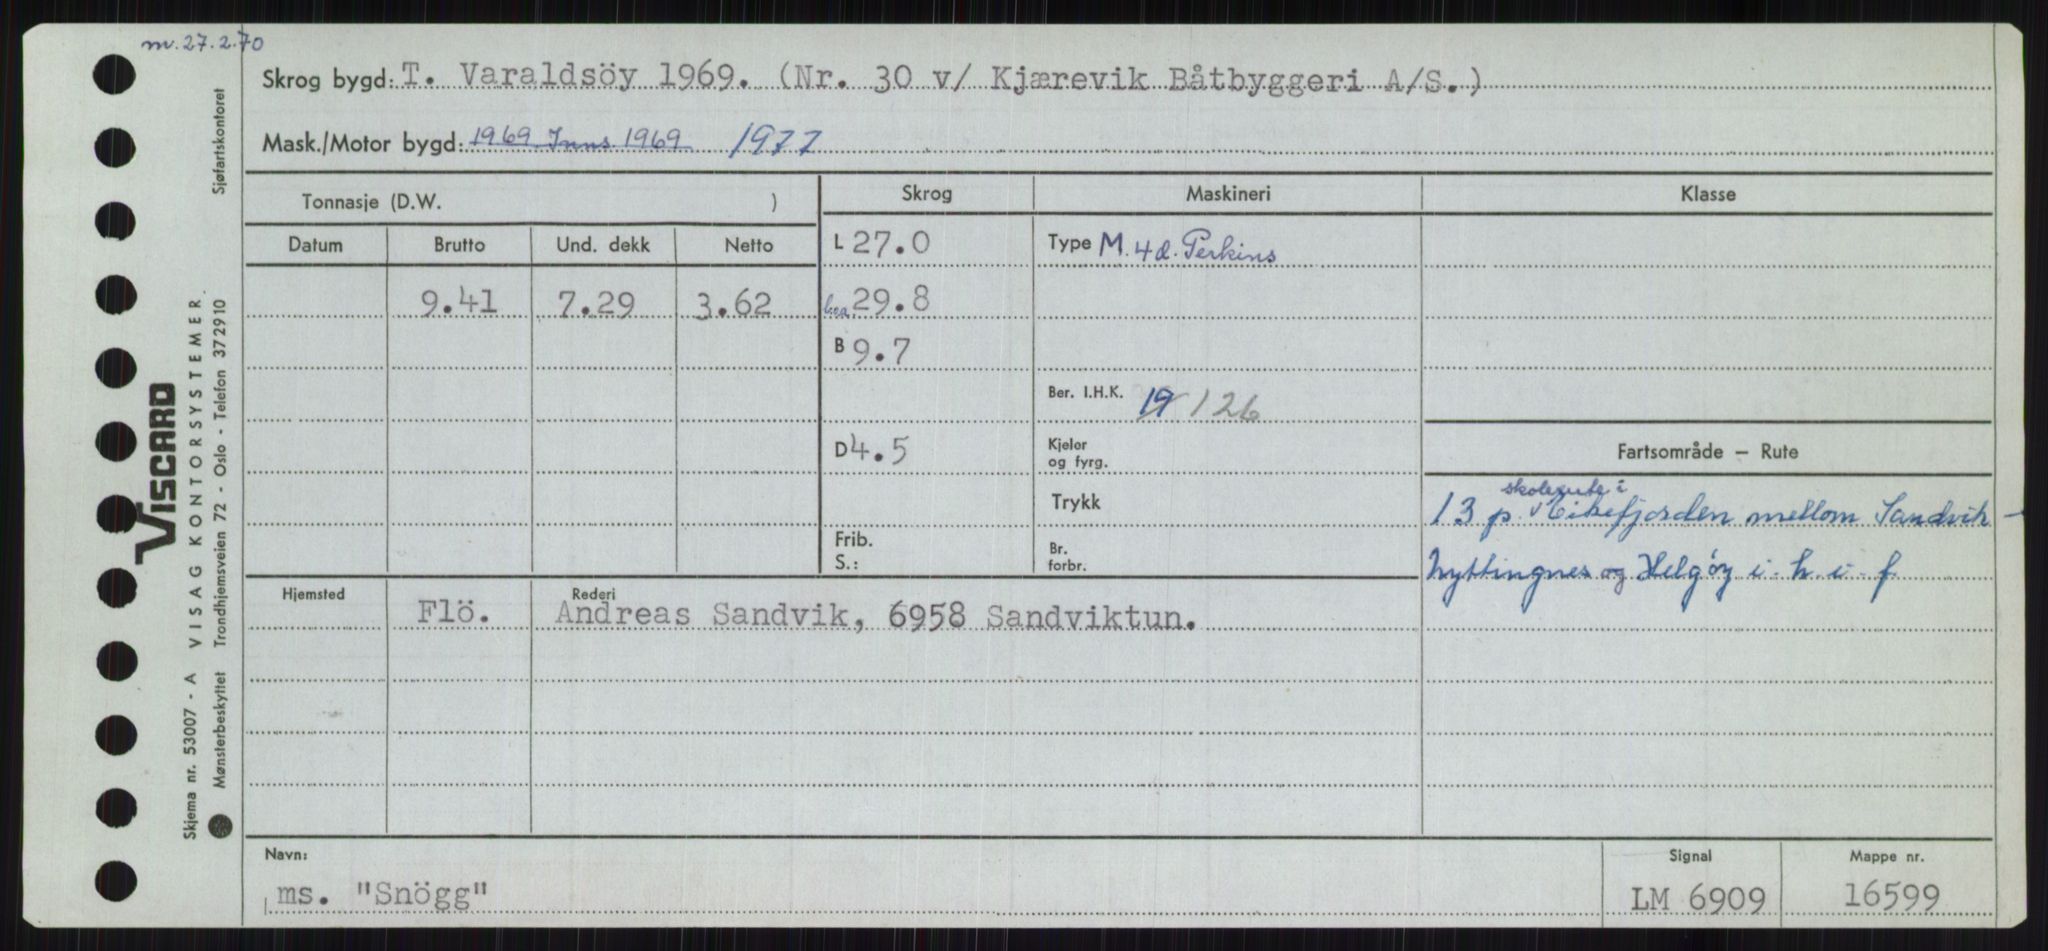 m. 27.2.70
Skrog bygd: T. Varaldsöy 1969. (Nr. 30 v/ Kjærevik Båtbyggeri A/S.)
Mask./Motor bygd: 1969 Inns. 1969 1977
Tonnasje (D.W. )
Skrog
Maskineri
Klasse
Datum
Brutto
Und. dekk
Netto
L 27.0
Type M. 4 d. Perkins
9.41
7.29
3.62
l.o.a. 29.8
B 9.7
Ber. I.H.K. 19 126
D 4.5
Kjeler
og fyrg.
Fartsområde – Rute
Trykk
skolerute i
13 p Eikefjorden mellom Sandvik -
Nyttingnes og Helgöy i h. i. f
Frib.
S.:
Br.
forbr.
Hjemsted
Flö.
Rederi
Andreas Sandvik, 6958 Sandviktun.
Navn:
ms. "Snögg"
Signal
LM 6909
Mappe nr.
16599
VISCARD
Skjema nr. 53007 - A VISAG KONTORSYSTEMER.
Mønsterbeskyttet Trondhjemsveien 72 - Oslo - Telefon 372910 Sjøfartskontoret